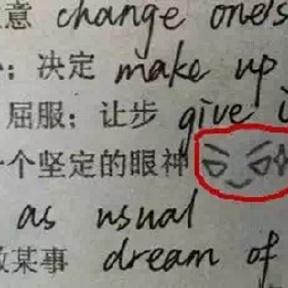 意 change one's
决定 make up
屈服；让步 give i
一个坚定的眼神
as usual
某事 dream of